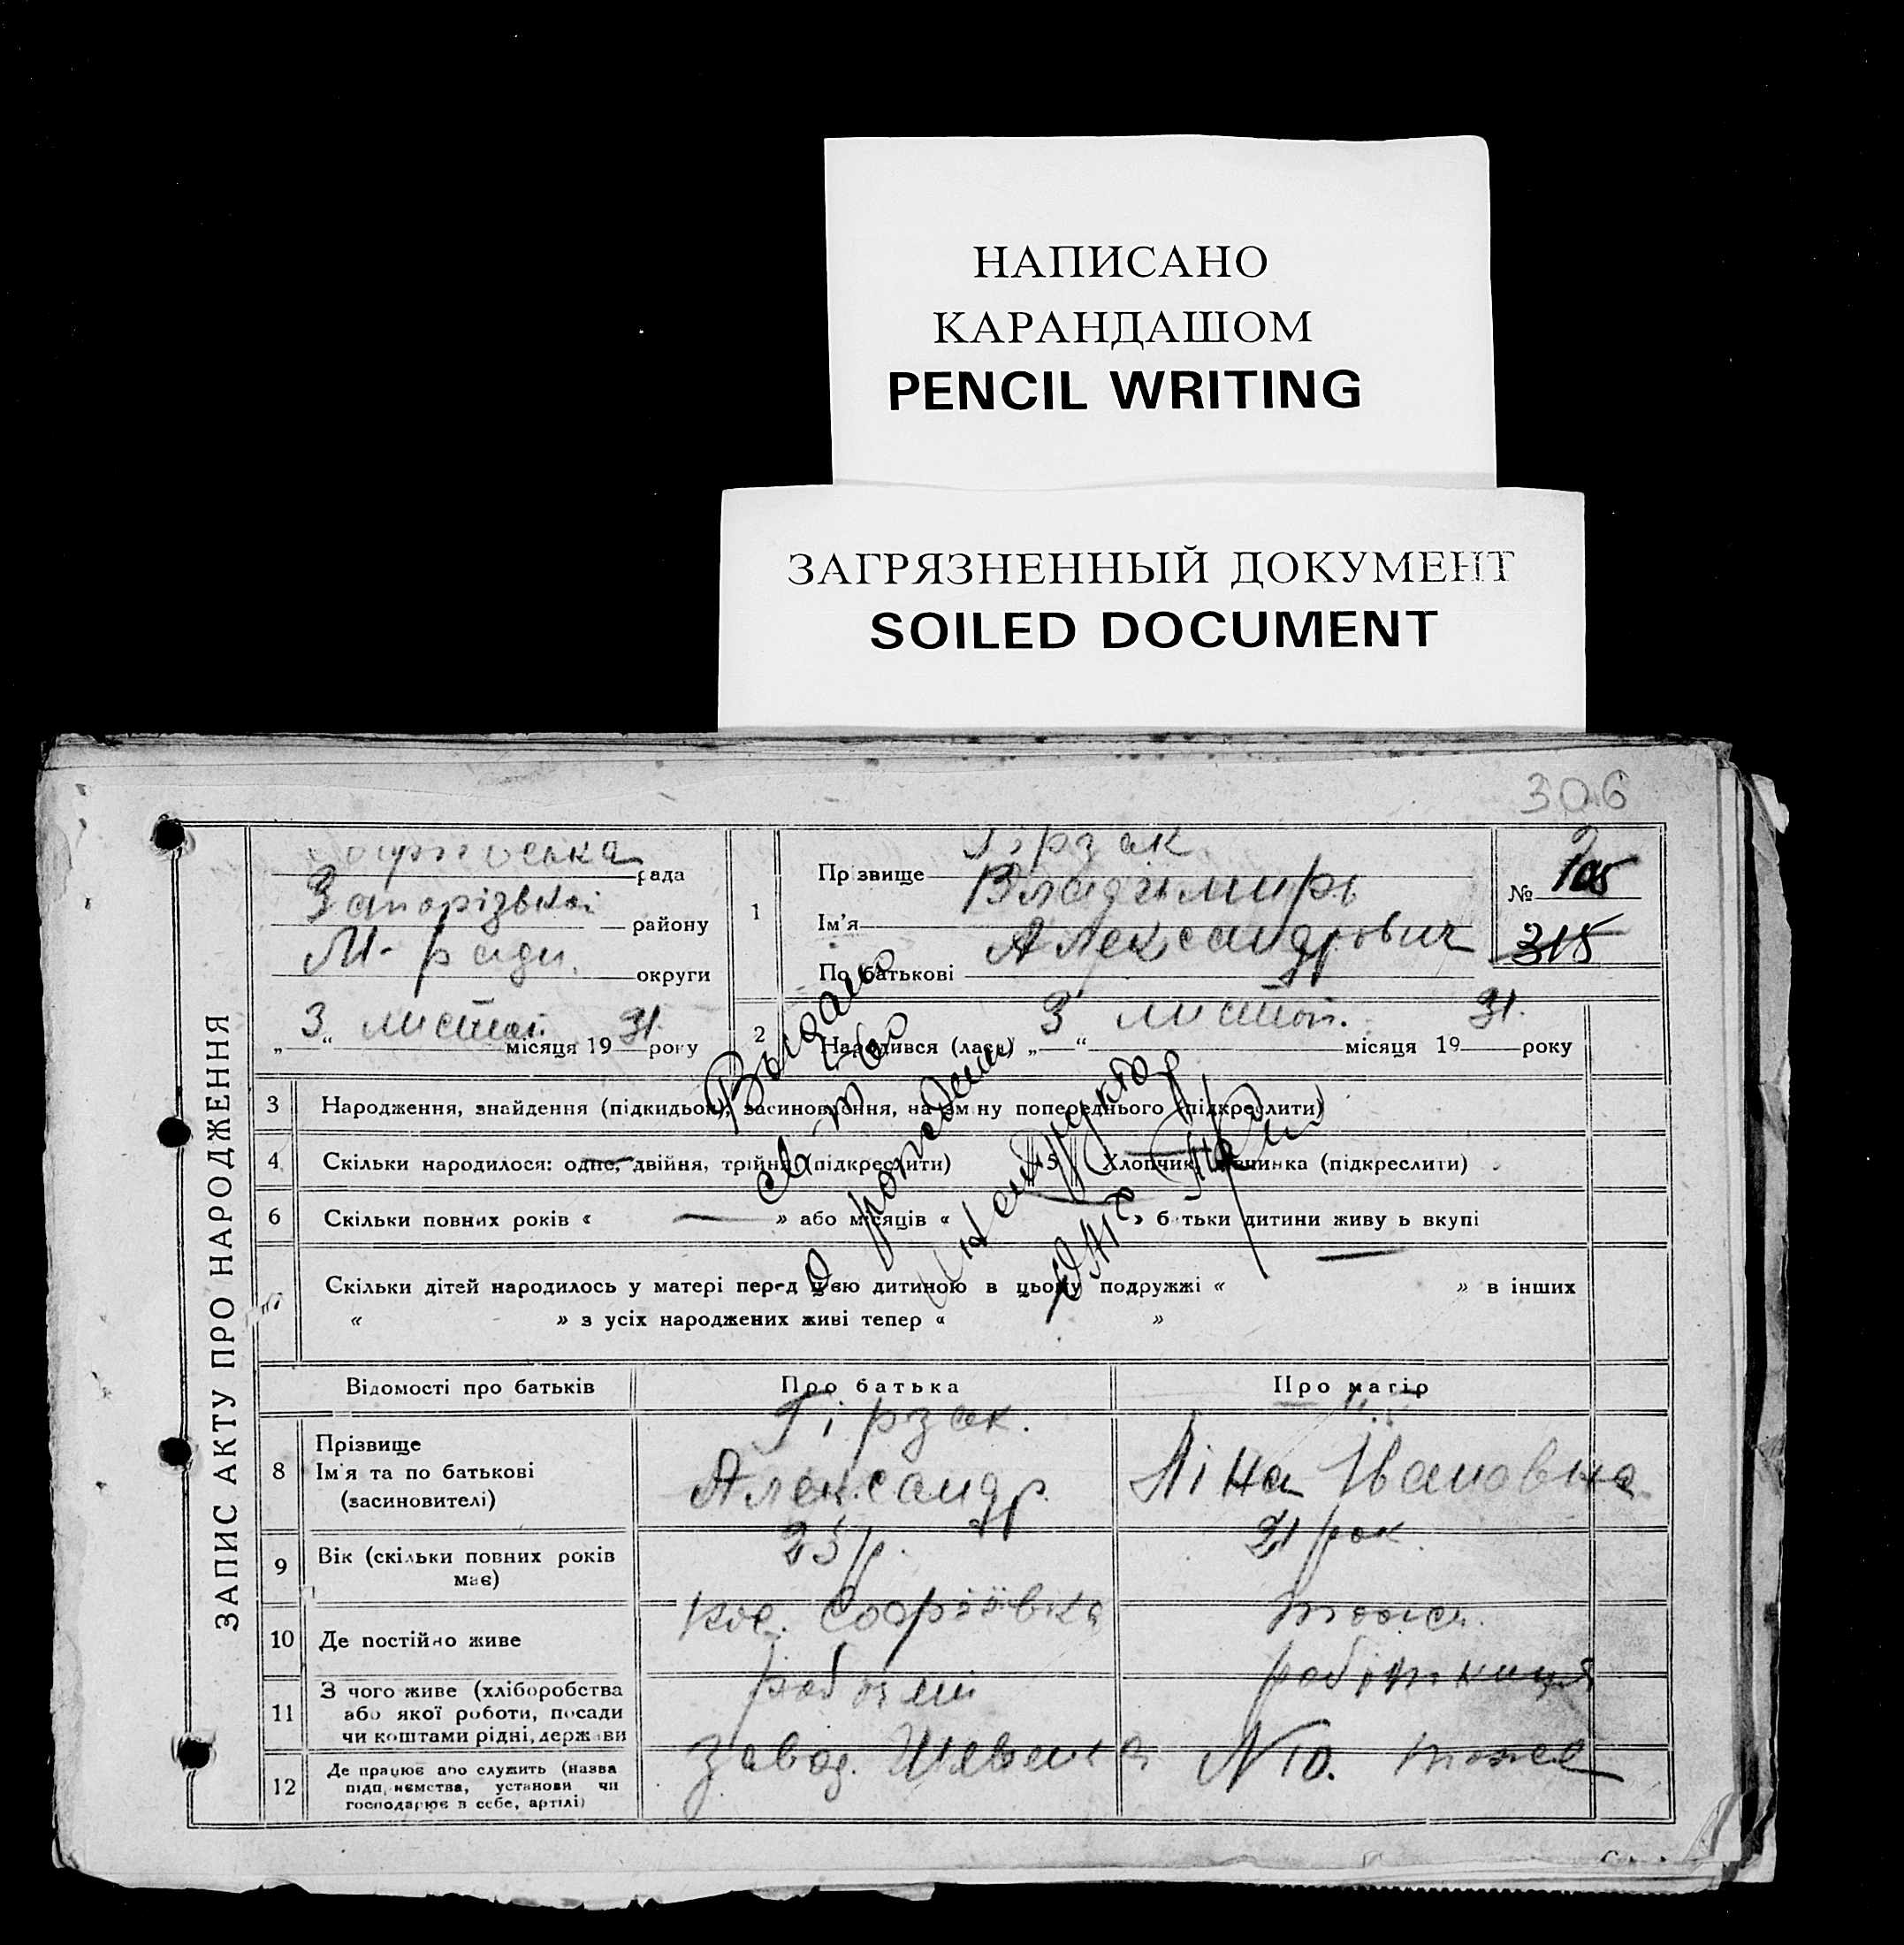 НАПИСАНО
КАРАНДАШОМ
PENCIL WRITING
ЗАГРЯЗНЕННЫЙ ДОКУМЕНТ
SOILED DOCUMENT
306
ЗАПИС АКТУ ПРО НАРОДЖЕННЯ
рада
Запорізької району
М-ради. округи
„3“ листоп. місяця 1931. року
1
Прізвище Гірзак
Ім'я Владимирь
По батькові Александрович
№ 105
315
2
Народився (лася) „3“ листоп. місяця 1931. року
3 Народження, знайдення (підкидьок), засиновлення, на зміну попереднього (підкреслити)
4 Скільки народилося: одне, двійня, трійня (підкреслити) 5 Хлопчик, дівчинка (підкреслити)
6 Скільки повних років « — » або місяців « » батьки дитини живуть вкупі
Скільки дітей народилось у матері перед цією дитиною в цьому подружжі « » в інших
« » з усіх народжених живі тепер « »
Выдано
св-во
о рождении
Відомості про батьків Про батька Про матір
8 Прізвище
Ім'я та по батькові
(засиновителі)
Гірзак.
Александр.
Ліна Івановна
9 Вік (скільки повних років
має)
25 р. 21 рок.
10 Де постійно живе кол. Софіївка тоже.
11 З чого живе (хліборобства
або якої роботи, посади
чи коштами рідні, держави
робочий робітниця
12 Де працює або служить (назва
підприємства, установи чи
господарює в себе, артілі)
завод. N 10. тоже